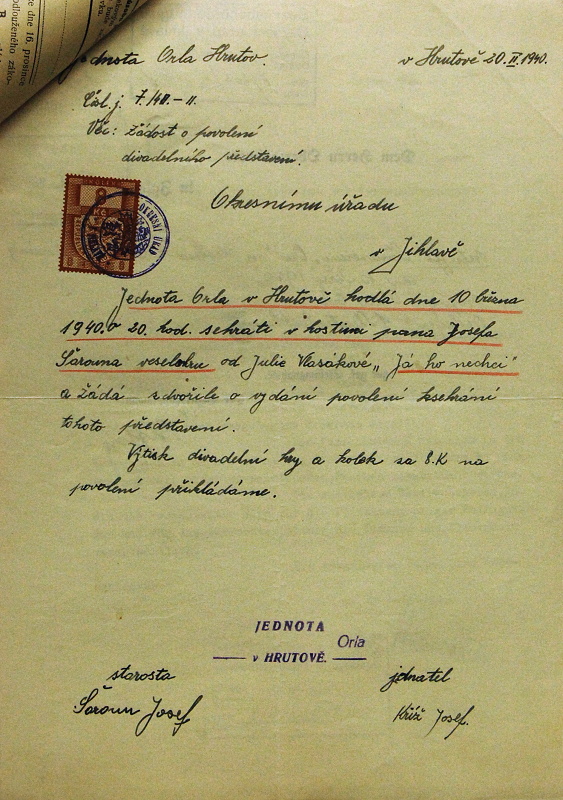 ce dne 16. prosince
odlouženého záko-
Jednota Orla Hrutov.
v Hrutově 20.II.1940.
Čísl. j. 7/40.-II.
Věc: Žádost o povolení
divadelního představení.
Okresnímu úřadu
v Jihlavě
8
KČ
8 8
Jednota Orla v Hrutově hodlá dne 10 března
1940.o 20. hod. sehráti v hostinci pana Josefa
Šarouna veselohru od Julie Vlasákové „Já ho nechci"
a žádá zdvořile o vydání povolení ksehrání
tohoto představení.
Výtisk divadelní hry a kolek za 8.K na
povolení přikládáme.
JEDNOTA
Orla
v HRUTOVĚ.
starosta
jednatel
Šaroun Josef
Kříž Josef.